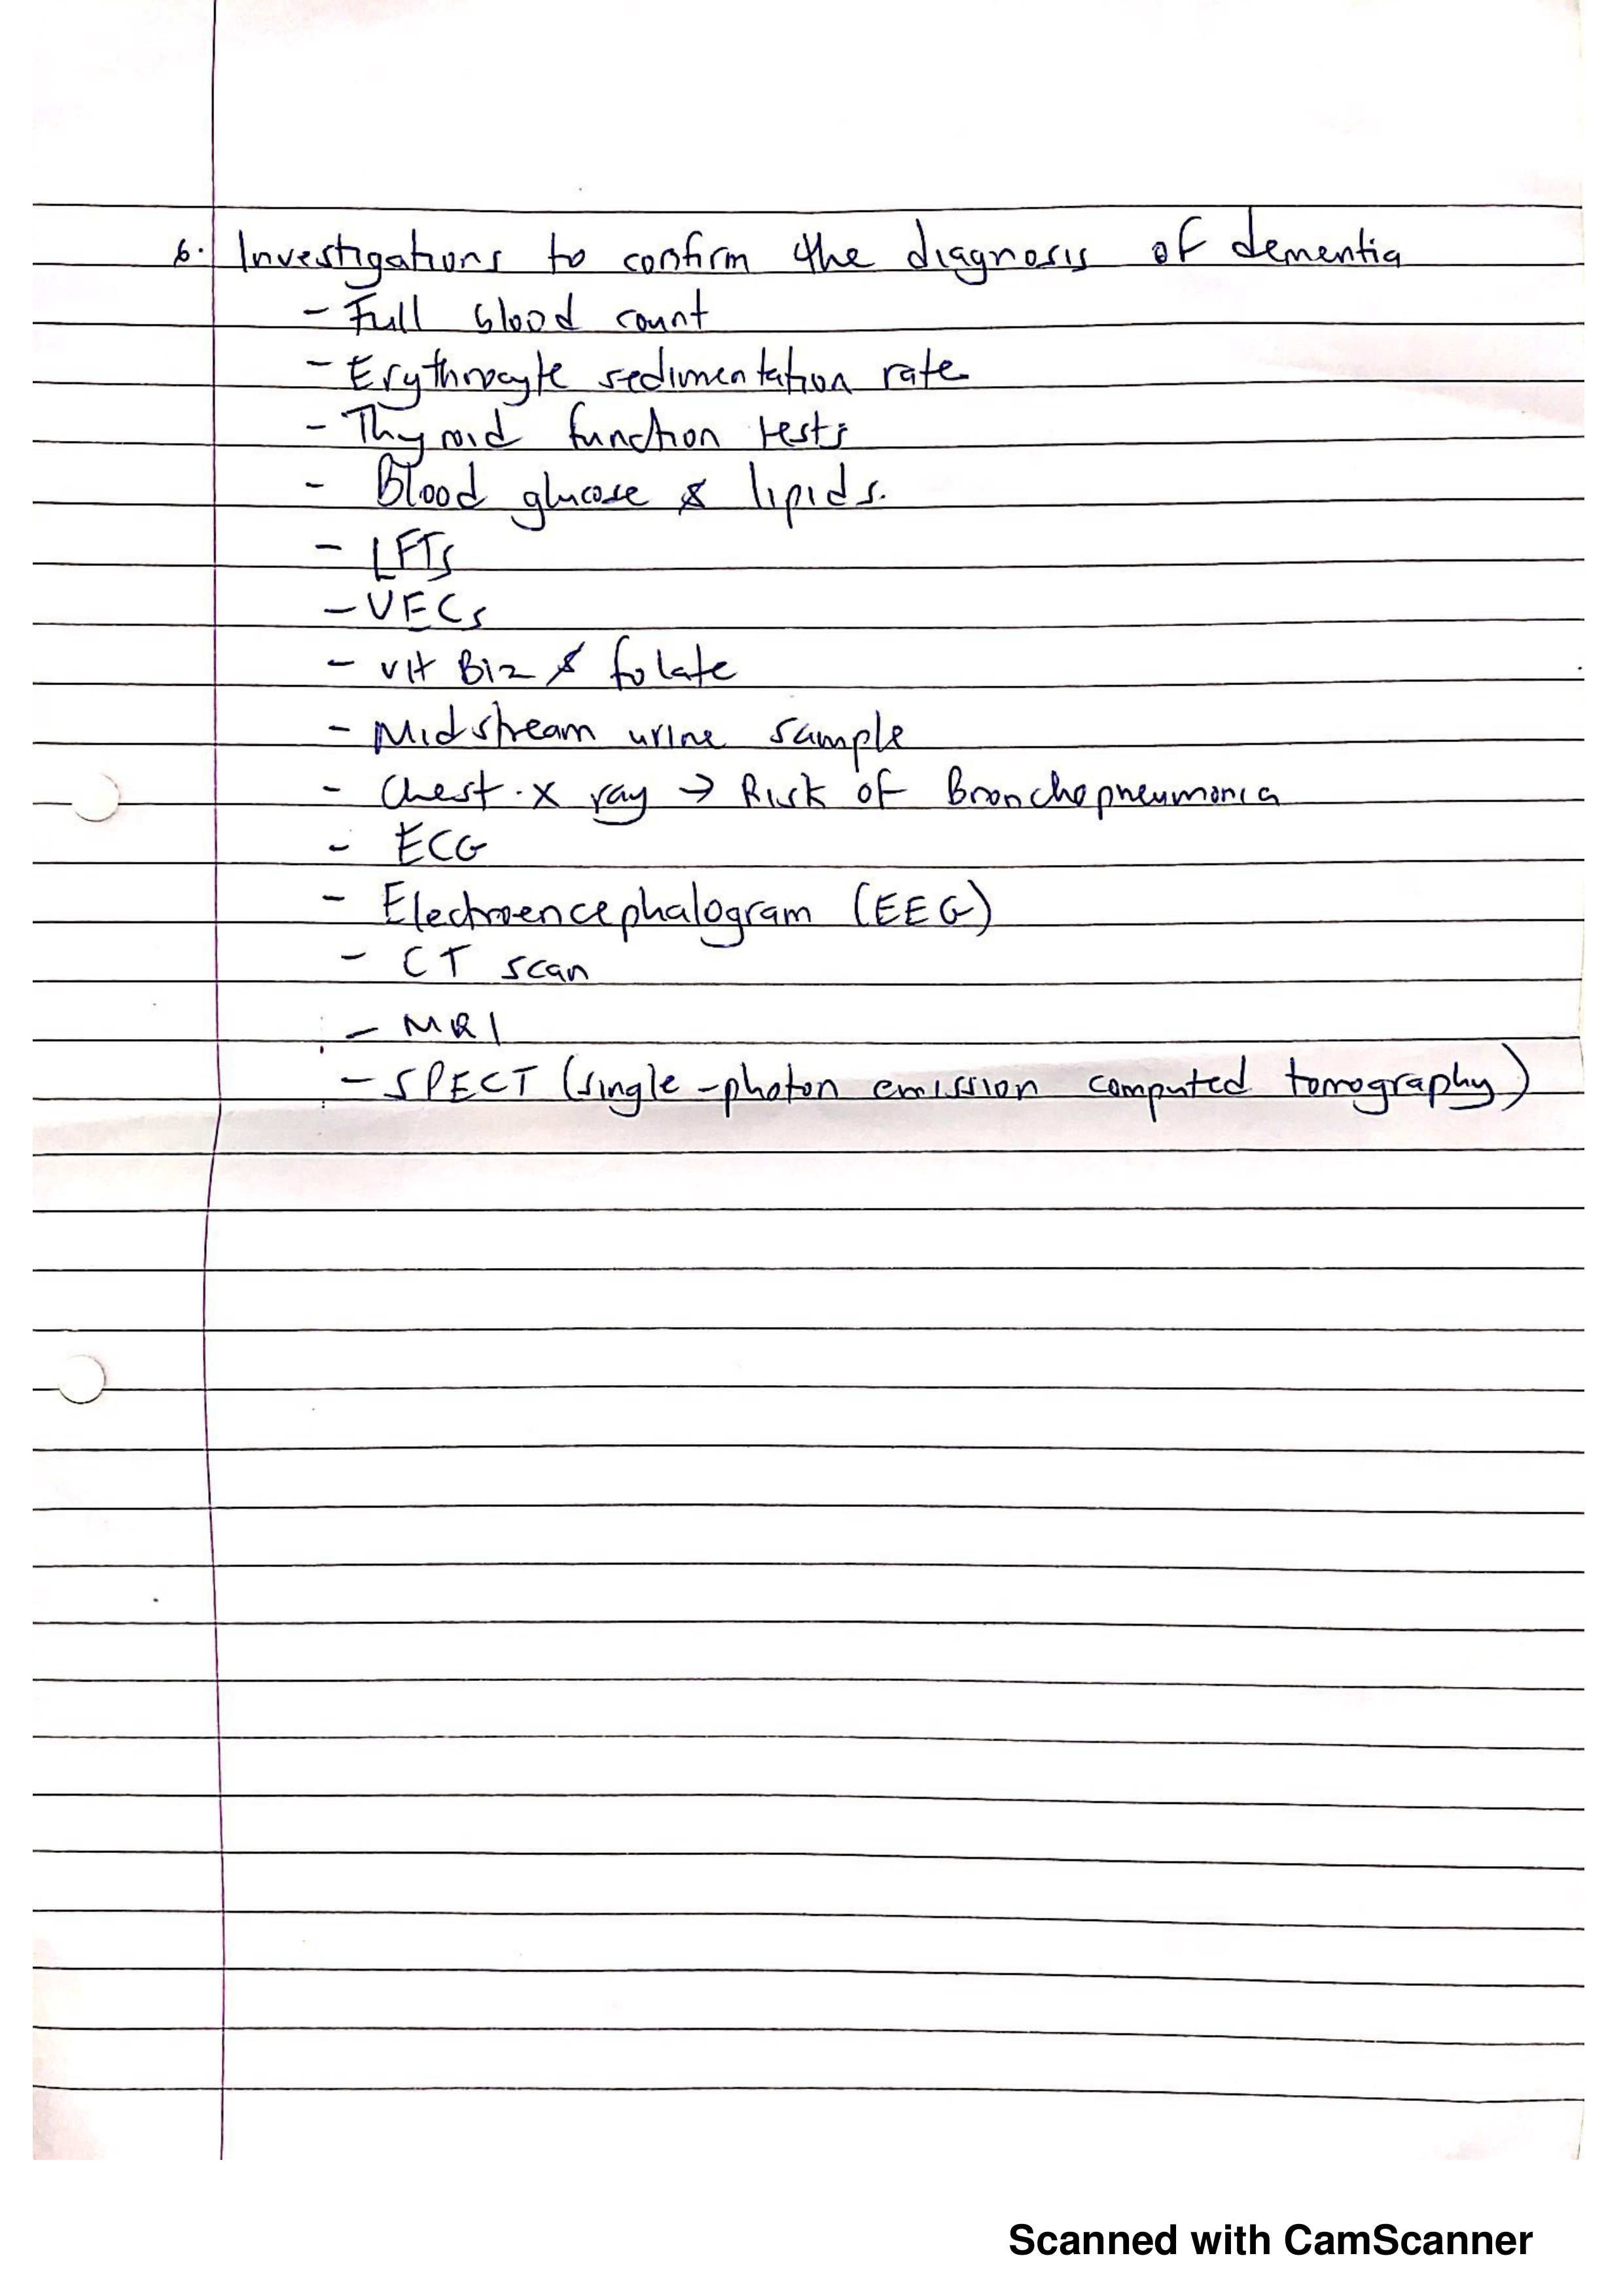 6. Investigations to confirm the diagnosis of dementia
- Full blood count
- Erythrocyte sedimentation rate
- Thyroid function tests
- Blood glucose & lipids.
- LFTs
- UECs
- vit B12 & folate
- Midstream urine sample
- Chest X ray → Risk of Bronchopneumonia
- ECG
- Electroencephalogram (EEG)
- CT scan
- MRI
- SPECT (single-photon emission computed tomography)
Scanned with CamScanner